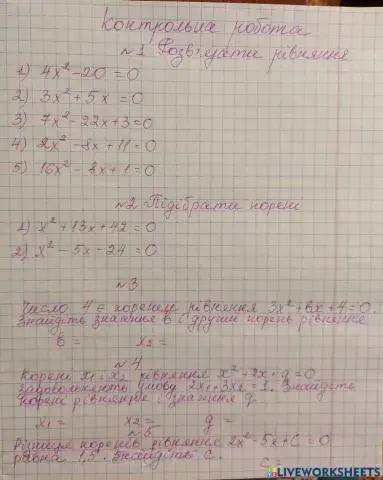 Контрольна робота
№1 Розв'язати рівняння
1) 4x² - 20 = 0
2) 3x² + 5x = 0
3) 7x² - 22x + 3 = 0
4) 2x² - 8x + 11 = 0
5) 16x² - 8x + 1 = 0
№2 Підібрати корені
1) x² + 13x + 42 = 0
2) x² - 5x - 24 = 0
№3
Число 4 є коренем рівняння 3x² + bx + 4 = 0.
Знайдіть значення b і другий корінь рівняння
b = x₂ =
№4
Корені x₁ і x₂ рівняння x² + 2x + q = 0
задовольняють умову 2x₁ + 3x₂ = 1. Знайдіть
корені рівняння і значення q.
x₁ = x₂ = q =
№5
Різниця коренів рівняння 2x² - 5x + c = 0
рівна 1,5. Знайдіть c.
c =
LIVEWORKSHEETS